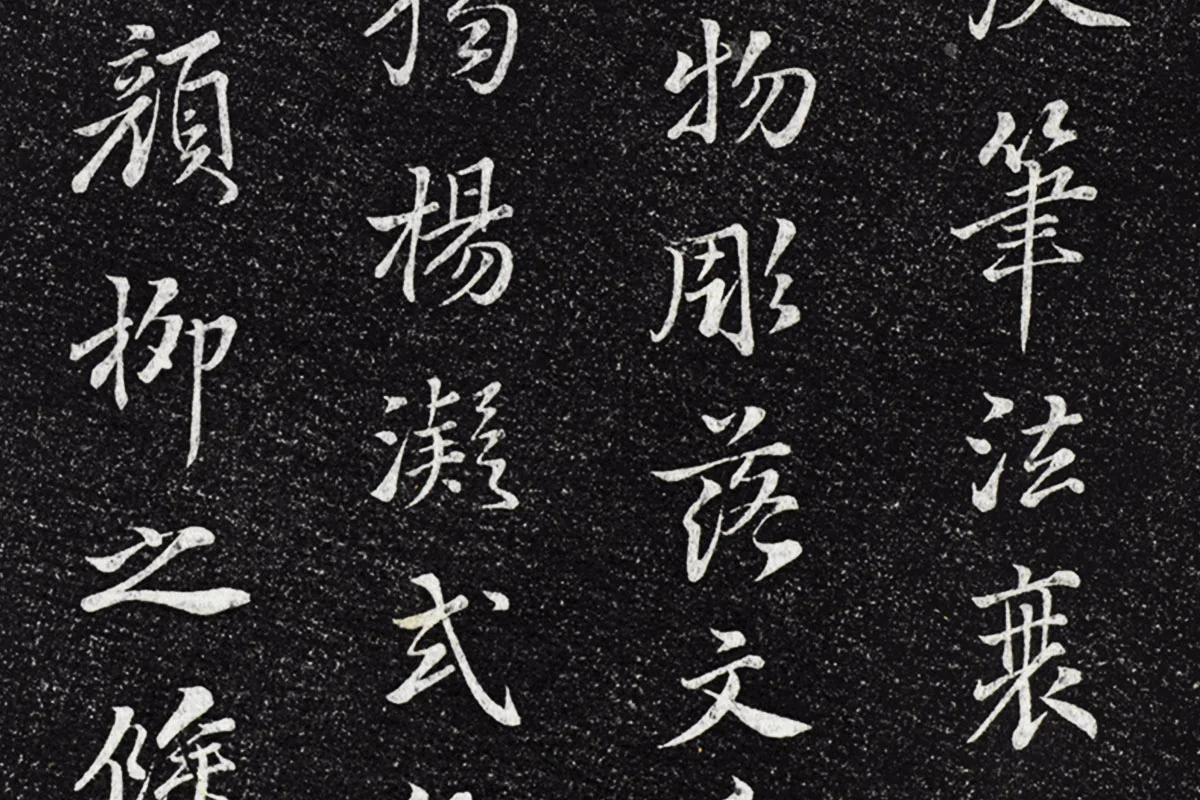 筆法衰
物彫落文
楊凝式
顏柳之餘